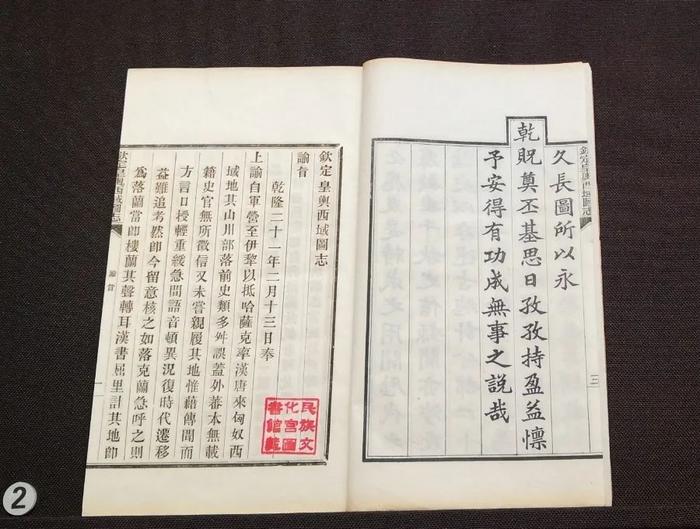 欽定皇輿西域圖志
三
久長圖所以永
乾貺奠丕基思日孜孜持盈益懍
予安得有功成無事之說哉
欽定皇輿西域圖志
諭旨
乾隆二十一年二月十三日奉
上諭自軍營至伊犂以抵哈薩克率漢唐來匈奴西
域地其山川部落前史類多舛誤蓋外蕃本無載
籍史官無所徵信又未嘗親履其地惟藉傳聞而
方言口授輕重緩急間語音頓異況復時代遷移
益難追考然即今留意核之如落克蘭急呼之則
爲落蘭當卽樓蘭其聲轉耳漢書屈里計其地卽
欽定皇輿西域圖志
諭旨
一
民族文
化宮圖
書館藏
2